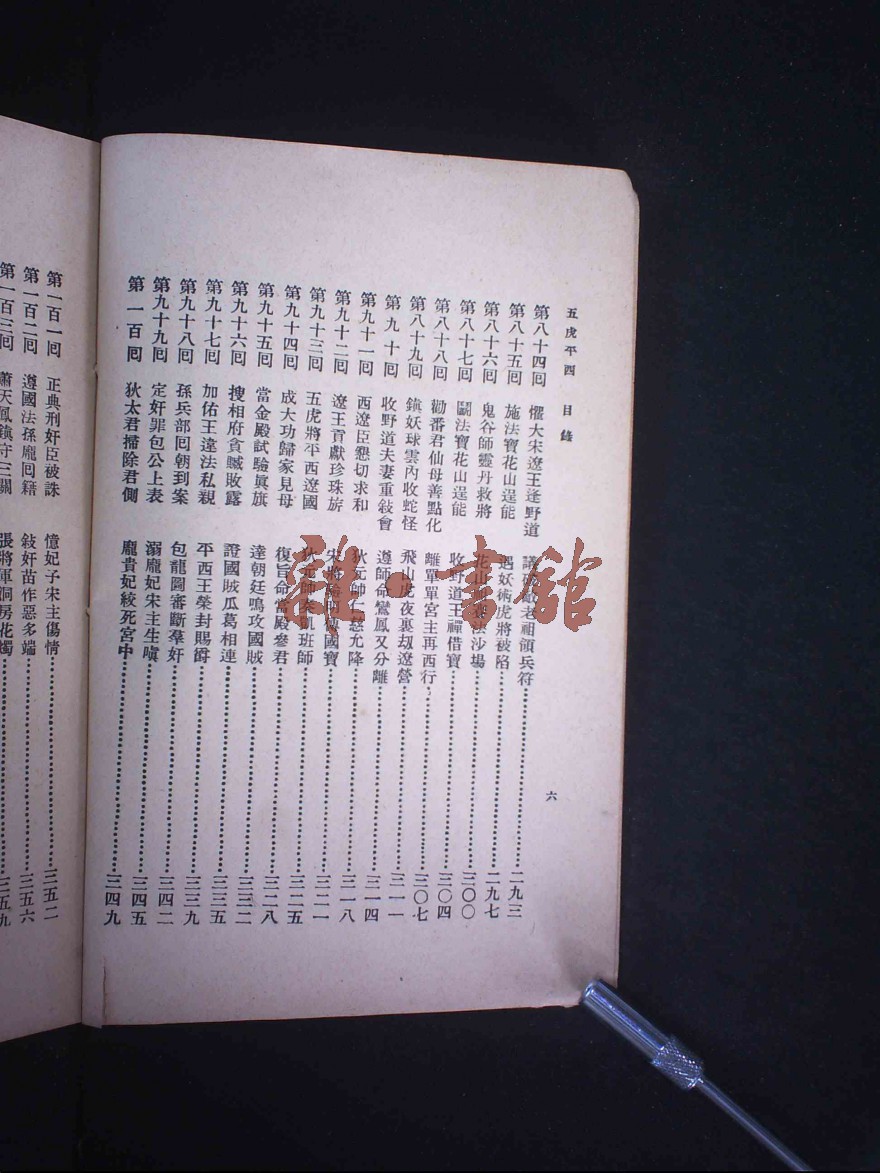 五虎平西 目錄 六
第八十四囘 懼大宋遼王逢野道 議破敵老祖領兵符 二九三
第八十五囘 施法寶花山逞能 遇妖術虎將被陷 二九七
第八十六囘 鬼谷師靈丹救將 花山法沙場 三〇〇
第八十七囘 鬭法寶花山逞能 收野道王禪借寶 三〇四
第八十八囘 勸番君仙母善點化 離單單宮主再西行 三〇七
第八十九囘 鎭妖球雲內收蛇怪 飛山虎夜裏刧遼營 三一一
第九十囘 收野道夫妻重敍會 遵師命鸞鳳又分離 三一四
第九十一囘 西遼臣懇切求和 狄元帥仁慈允降 三一八
第九十二囘 遼王貢獻珍珠旂 宋將國寶 三二一
第九十三囘 五虎將平西遼國 狄元帥奏凱班師 三二五
第九十四囘 成大功歸家見母 復旨命當殿參君 三二八
第九十五囘 當金殿試驗眞旗 達朝廷鳴攻國賊 三三二
第九十六囘 搜相府貪贓敗露 證國賊瓜葛相連 三三五
第九十七囘 加佑王違法私親 平西王榮封賜爵 三三九
第九十八囘 孫兵部囘朝到案 包龍圖審斷羣奸 三四二
第九十九囘 定奸罪包公上表 溺龐妃宋主生嗔 三四五
第一百囘 狄太君掃除君側 龐貴妃絞死宮中 三四九
第一百一囘 正典刑奸臣破誅 憶妃子宋主傷情 三五二
第一百二囘 遵國法孫龐囘籍 敍奸苗作惡多端 三五六
第一百三囘 蕭天鳳鎭守三關 張將軍洞房花燭 三五九
雜·書館